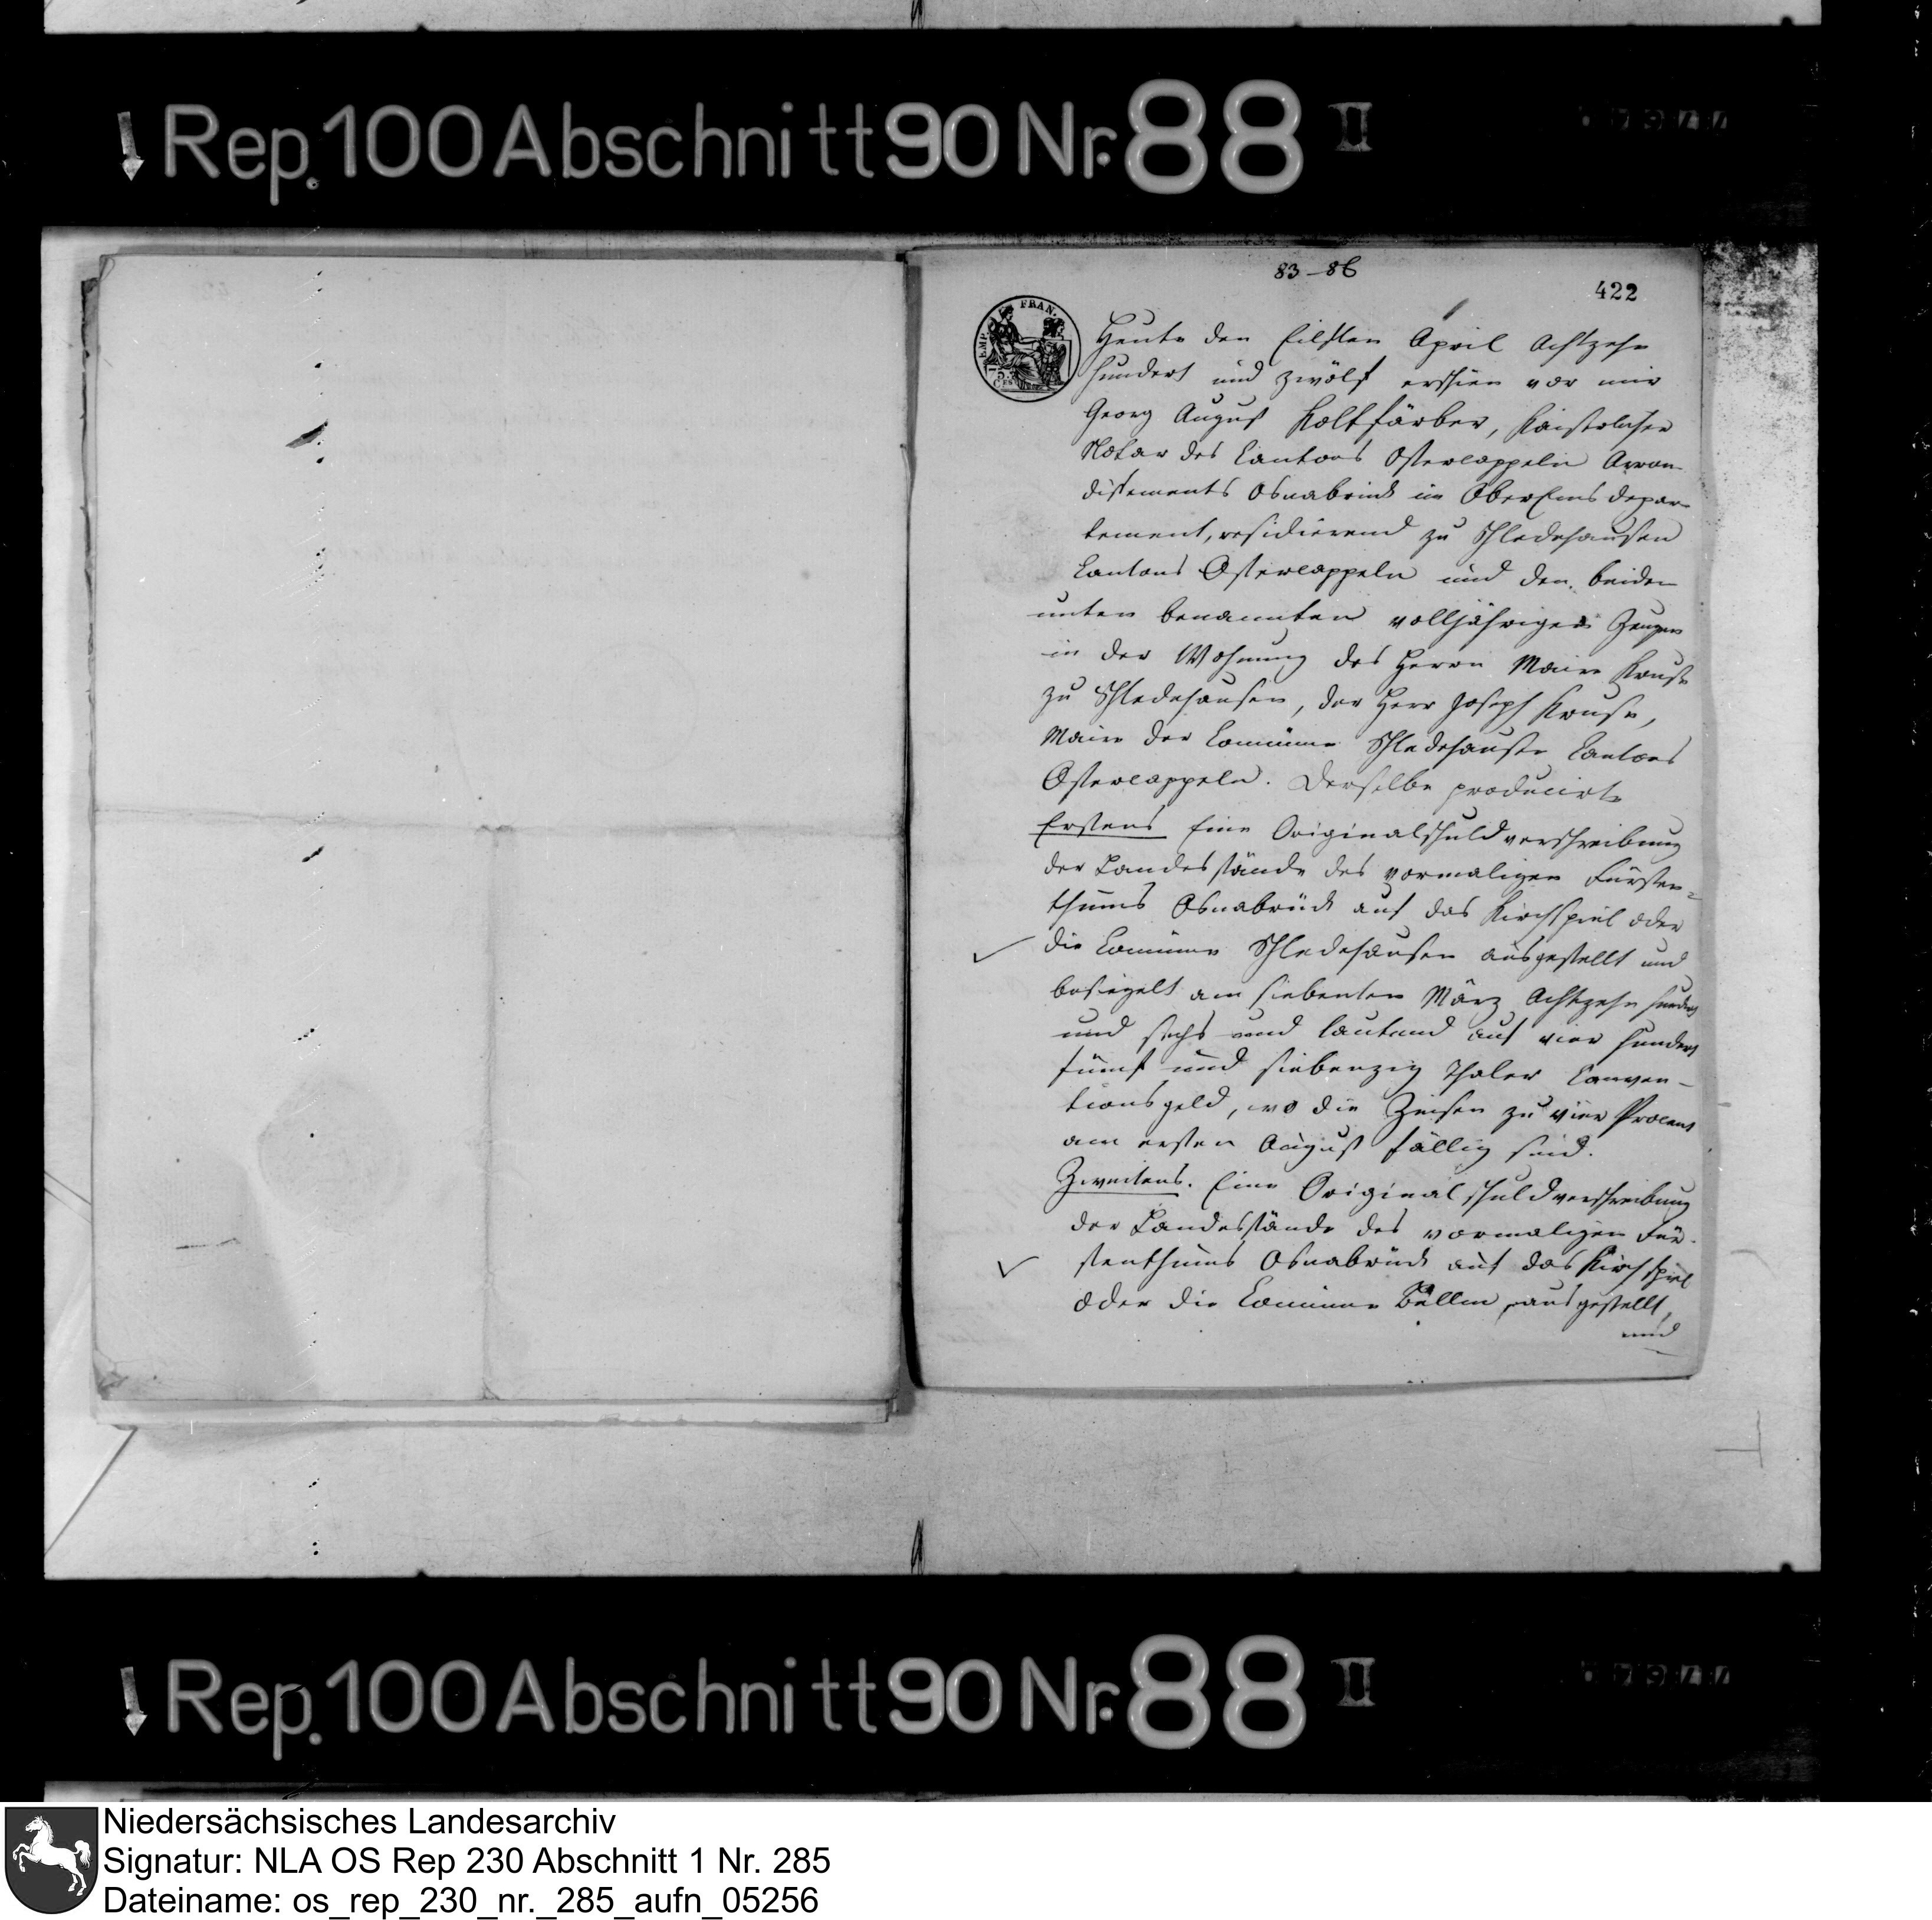 Rep. 100 Abschnitt 90 Nr. 88 II
83-86
422
EMP. FRAN.
75.
Heute den Eilften April Achtzehn
hundert und zwölf erschien vor mir
Georg August Kaltfärber, Kaiserlicher
Notar des Cantons Ostercappeln Arron-
dissements Osnabrück im OberEms depar-
tement, residierend zu Schledehausen
Cantons Ostercappeln und den beiden
unten benannten volljährigen Zeugen
in der Wohnung des Herrn Maire Kruse
zu Schledehausen, der Herr Joseph Kruse,
Maire der Commune Schledehausen Cantons
Ostercappeln. Derselbe producirte
Erstens Eine Originalschuldverschreibung
der Landesstände des vormaligen Fürsten=
thums Osnabrück auf das Kirchspiel oder
die Commune Schledehausen ausgestellt und
besiegelt am siebenten März Achtzehn hundert
und sechs und lautend auf vier hundert
fünf und siebenzig Thaler Conven-
tionsgeld, wo die Zinsen zu vier Procent
am ersten August fällig sind.
Zweitens. Eine Originalschuldverschreibung
der Landesstände des vormaligen Für-
stenthums Osnabrück auf das Kirchspiel
oder die Commune ausgestellt,
und
Rep. 100 Abschnitt 90 Nr. 88 II
Niedersächsisches Landesarchiv
Signatur: NLA OS Rep 230 Abschnitt 1 Nr. 285
Dateiname: os_rep_230_nr._285_aufn_05256